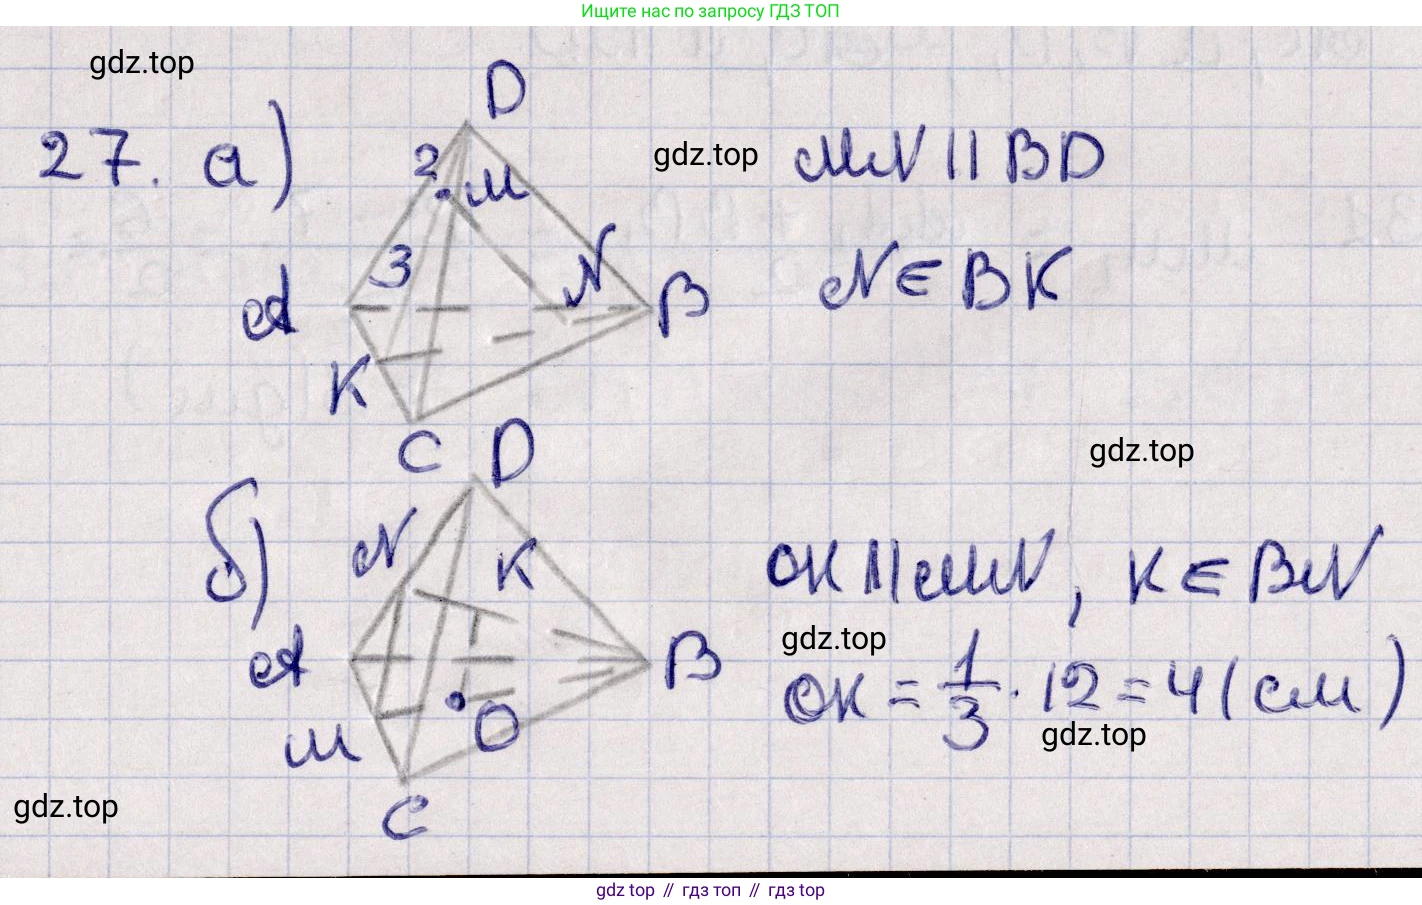 Ищите нас по запросу ГДЗ ТОП
gdz.top
27. а)
D
2
M
3
A
N
B
K
C
gdz.top
MN || BD
N ∈ BK
gdz.top
б)
D
N
K
A
B
M
O
C
OK || MN, K ∈ BN
gdz.top
OK = 1/3 · 12 = 4 (см)
gdz.top
gdz.top
gdz top // гдз топ // гдз top